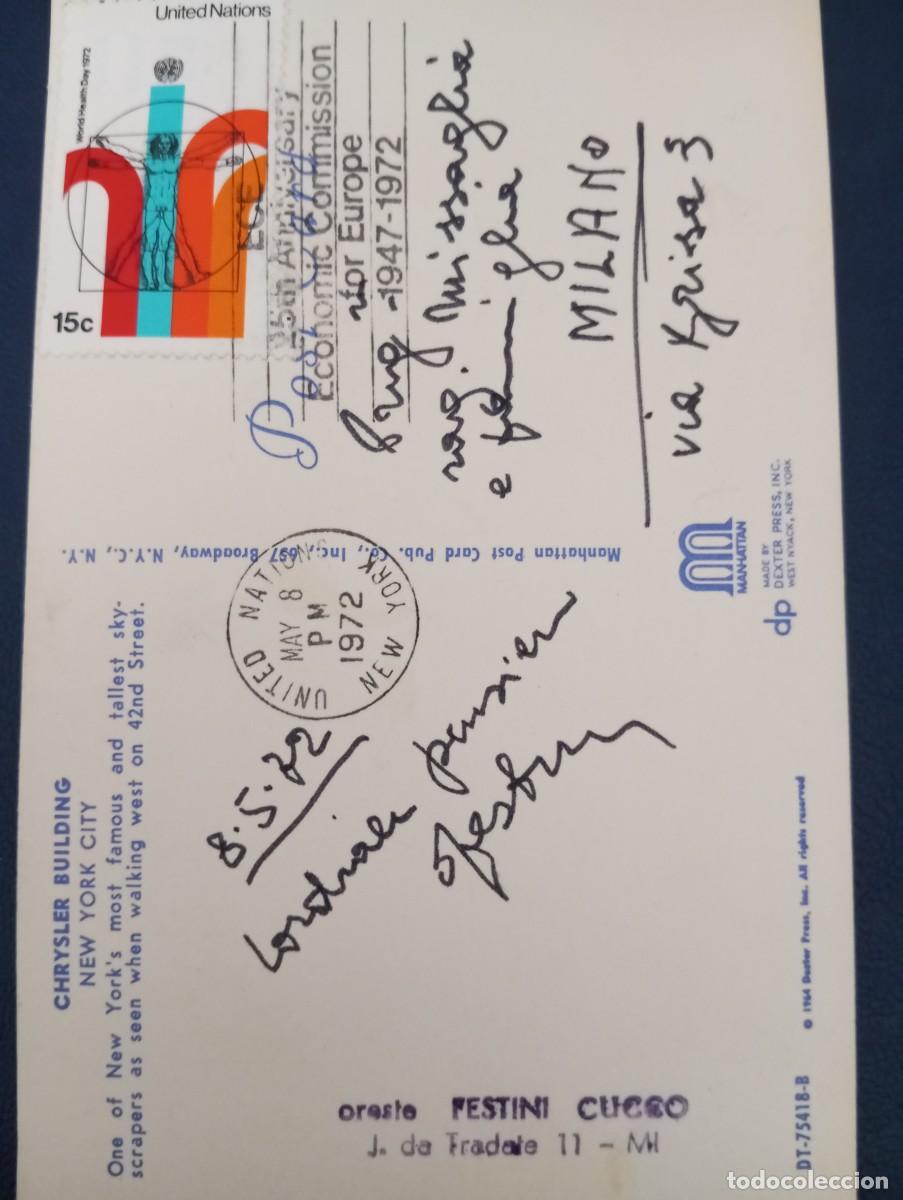 CHRYSLER BUILDING
NEW YORK CITY
One of New York's most famous and tallest sky-
scrapers as seen when walking west on 42nd Street.
8.5.72
cordiale pensiero
oreste FESTINI CUCCO
J. da Tradate 11 - MI
DT-75418-B
© 1964 Dexter Press, Inc. All rights reserved
UNITED NATIONS
MAY 8
PM
1972
NEW YORK
Manhattan Post Card Pub. Co., Inc., 697 Broadway, N.Y.C., N.Y.
MANHATTAN
dp
MADE BY
DEXTER PRESS, INC.
WEST NYACK, NEW YORK
United Nations
World Health Day 1972
15c
ECE
25th Anniversary
Economic Commission
for Europe
1947-1972
Post Card
rag. Missaglia
e famiglia
MILANO
via Grisa 3
todocoleccion